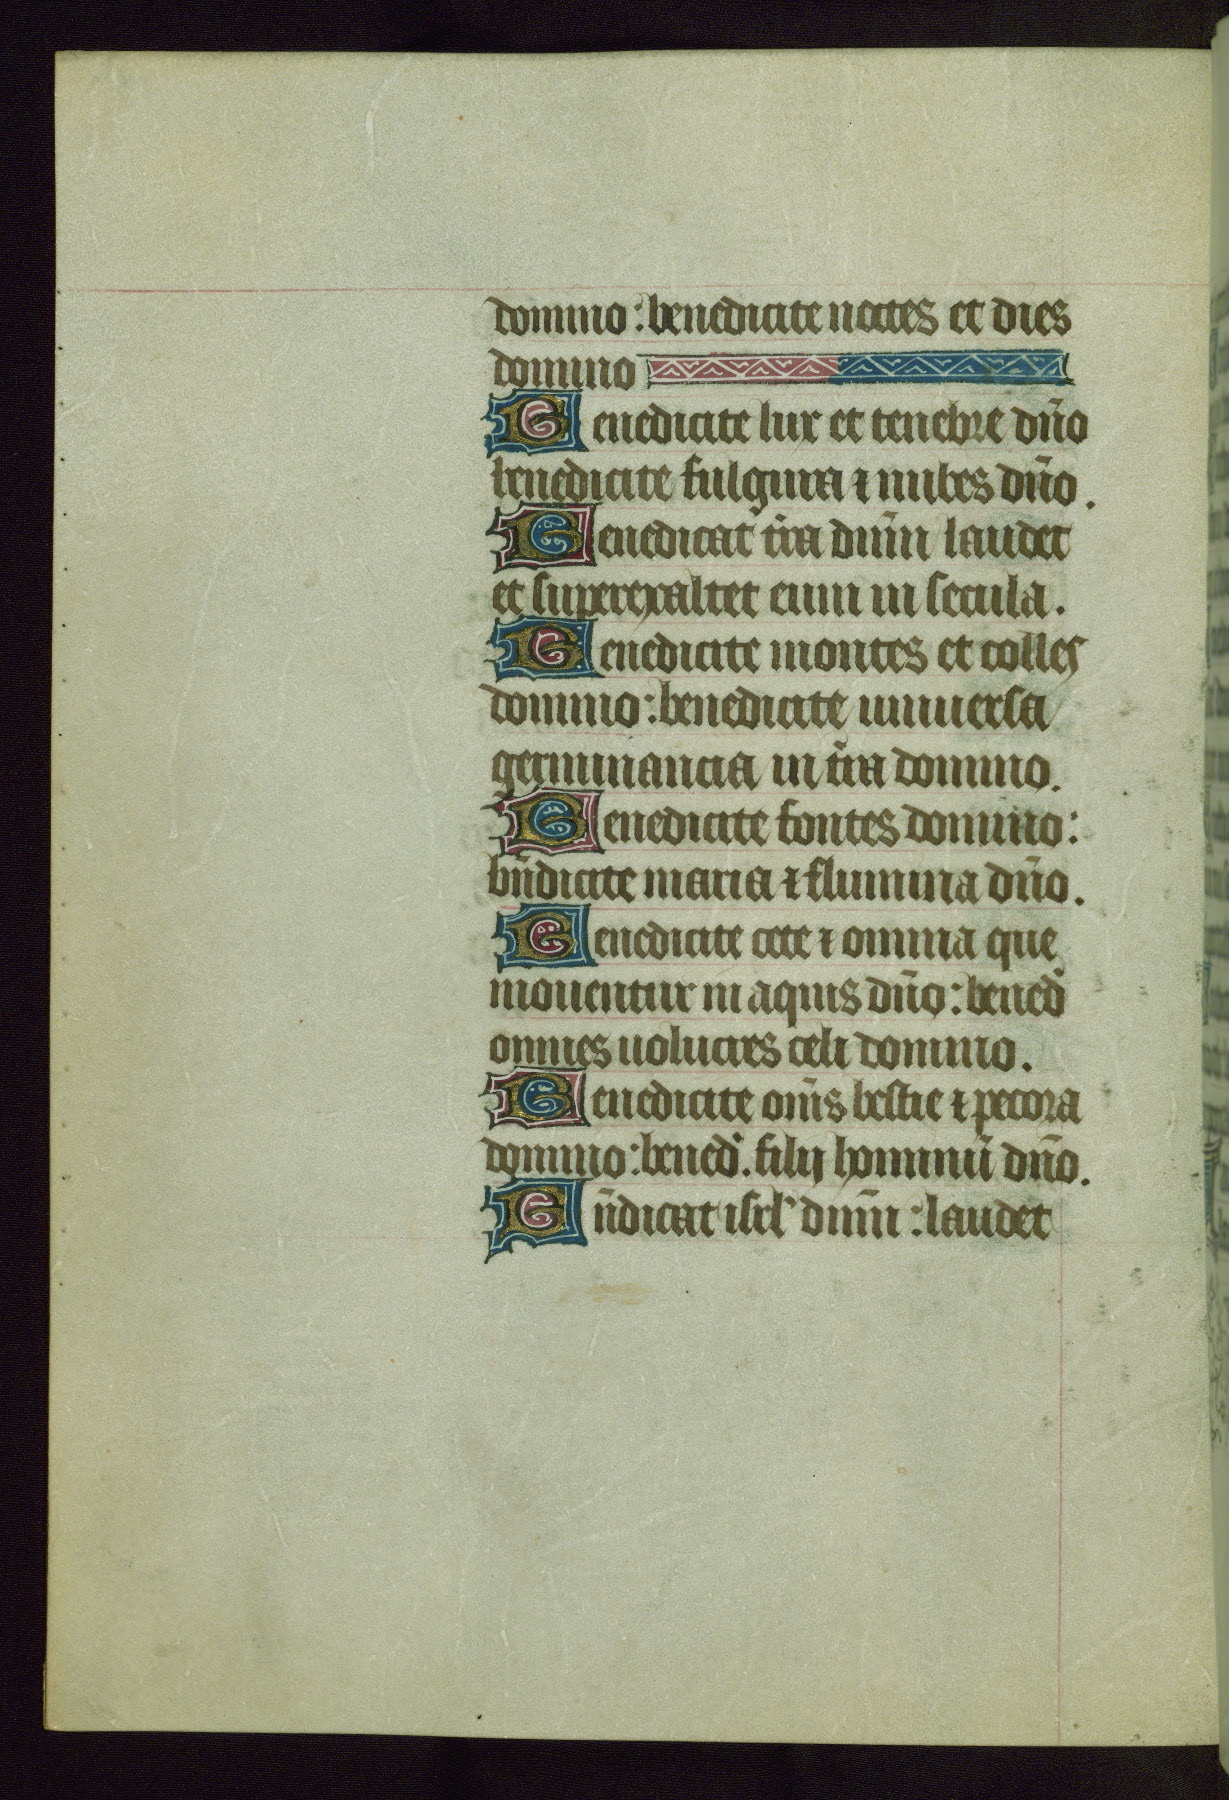 domino : benedicite noctes et dies
domino
Benedicite lux et tenebre dn̄o
benedicite fulgura ⁊ nubes dn̄o .
Benedicat t̄ra dnm̄ laudet
et superexaltet eum in secula .
Benedicite montes et colles
domino : benedicite uniuersa
germinancia in t̄ra domino .
Benedicite fontes domino :
bn̄dicite maria ⁊ flumina dn̄o .
Benedicite cete ⁊ omnia que
mouentur in aquis dn̄o : bened̉
omnes uolucres celi domino .
Benedicite om̄s bestie ⁊ pecora
domino : bened̉ . filij hominū dn̄o .
Bn̄dicat isrl̉ dnm̄ : laudet